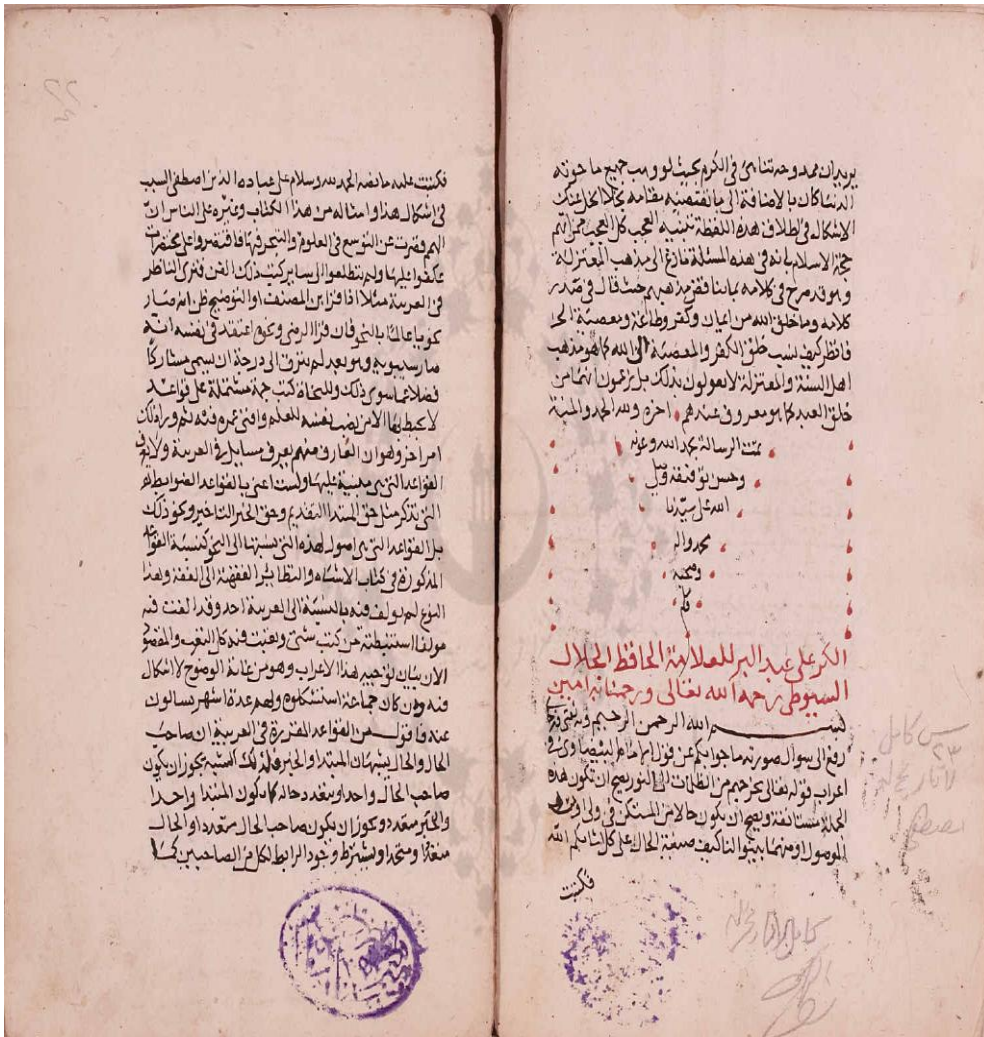 يريد ان ممدوحه تناهى في الكرم بحيث لو وهب جميع ما حوته
الدنيا كان بالاضافة الى ما تقتضيه مقامه بخلا انحل عنك
الاشكال في اطلاق هذه اللفظة تنبيه العجب كل العجب ممن اتهم
حجة الاسلام بانه في هذه المسئلة نازع الى مذهب المعتزلة
وهو قد صرح في كلامه بما يناقض مذهبهم حيث قال في صدر
كلامه وما خلق الله من ايمان وكفر وطاعة ومعصية الخ
فانظر كيف نسب خلق الكفر والمعصية الى الله كما هو مذهب
اهل السنة والمعتزلة لا يقولون بذلك بل يزعمون انهما من
خلق العبد كما هو معروف عندهم اخره ولله الحمد والمنة
تمت الرسالة بحمد الله وعونه
وحسن توفيقه وصلى
الله على سيدنا
محمد واله
وصحبه
وسلم
الكر على عبد البر للعلامة الحافظ الجلال
السيوطي رحمه الله تعالى ورحمنا به امين
بسم الله الرحمن الرحيم وبه ثقتي
رفع الى سوال صورته ما جوابكم عن قول الامام البيضاوي في
اعراب قوله تعالى يخرجهم من الظلمات الى النور يصح ان تكون هذه
الجملة مستانفة ويصح ان يكون حالا من المستكن في ولي او من
الموصول او منهما بينوا لنا كيف صيغة الحال على كل اثابكم الله
فكتبت
فكتبت عليه ما نصه الحمد لله وسلام على عباده الذين اصطفى السبب
في اشكال هذا وامثاله من هذا الكتاب وغيره على الناس ان
الهمم قصرت عن التوسع في العلوم والتبحر فيها فاقتصروا على مختصرات
عكفوا عليها ولم يتطلعوا الى ساير كتب ذلك الفن فترى الناظر
في العربية مثلا اذا قرا ابن المصنف او التوضيح ظن انه صار
نحويا عالما بالنحو فان قرا الرضي ونحوه اعتقد في نفسه انه
صار سيبويه وهو بعد لم يترق الى درجة ان يسمى مشاركا
فضلا عما سوى ذلك وللنحاة كتب جمة مشتملة على قواعد
لا يحيط بها الا من نصب نفسه للعلم وافنى عمره فيه ثم وراء ذلك
امر اخر وهو ان العارف منهم يعرف مسايل في العربية ولا يعرف
القواعد التي هي مبنية عليها ولست اعني بالقواعد الضوابط
التي تذكر مثل حق المبتدا التقديم وحق الخبر التاخير ونحو ذلك
بل القواعد التي هي اصول لهذه التي نسبتها الى النحو كنسبة القواعد
المذكورة في كتاب الاشباه والنظائر الفقهية الى الفقه وهذا
النوع لم يولف فيه بالنسبة الى العربية احد وقد الفت فيه
مولفا استنبطته من كتب شتى وتعبت فيه كل التعب والمقصود
الان بيان توجيه هذا الاعراب وهو من غاية الوضوح لا اشكال
فيه وان كان جماعة استشكلوه ولهم عدة اشهر يسالون
عنه فاقول من القواعد المقررة في العربية ان صاحب
الحال والحال يشبهان المبتدا والخبر فلذلك اشبه يجوز ان يكون
صاحب الحال واحدا ويتعدد حاله كما يكون المبتدا واحدا
والخبر متعدد ويجوز ان يكون صاحب الحال متعددا والحال
متعددا ومتحدا ويشترط وجود الرابط لكل من الصاحبين كما